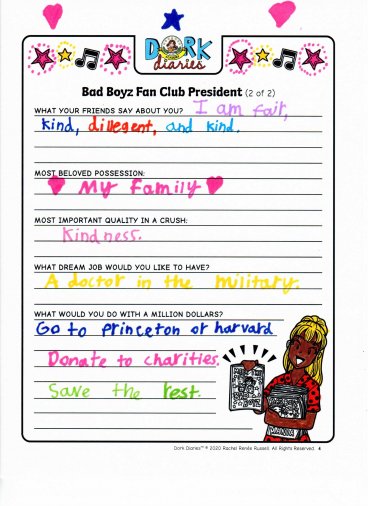 DORK
diaries
Bad Boyz Fan Club President (2 of 2)
WHAT YOUR FRIENDS SAY ABOUT YOU? I am fair,
kind, dillegent, and kind.
MOST BELOVED POSSESSION:
My Family
MOST IMPORTANT QUALITY IN A CRUSH:
Kindness.
WHAT DREAM JOB WOULD YOU LIKE TO HAVE?
A doctor in the military.
WHAT WOULD YOU DO WITH A MILLION DOLLARS?
Go to princeton or harvard
Donate to charities.
Save the rest.
Dork Diaries™ © 2020 Rachel Renée Russell. All Rights Reserved. 4